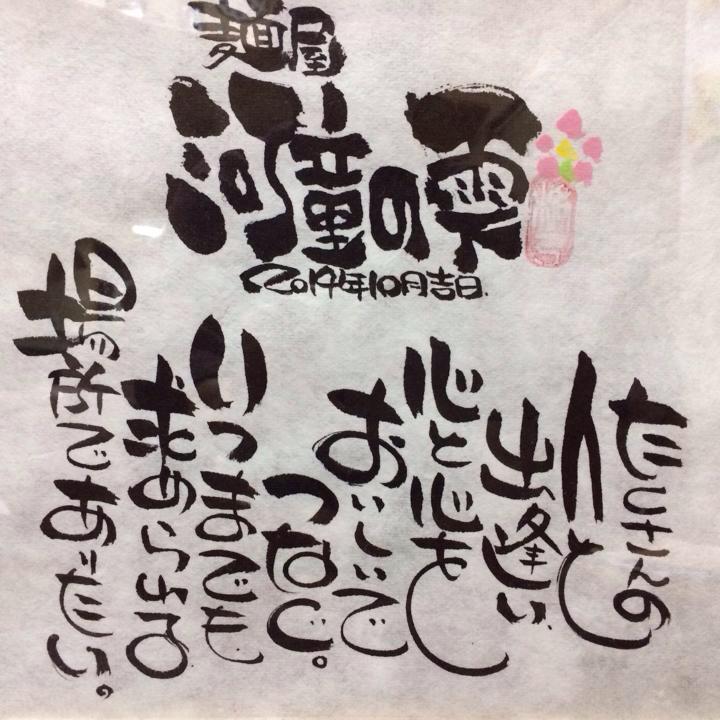 麺屋
河童の雫
2014年10月吉日.
たくさんの
人と
出逢い、
心と心を
おいしいで
つなぐ。
いつまでも
求められる
場所でありたい。